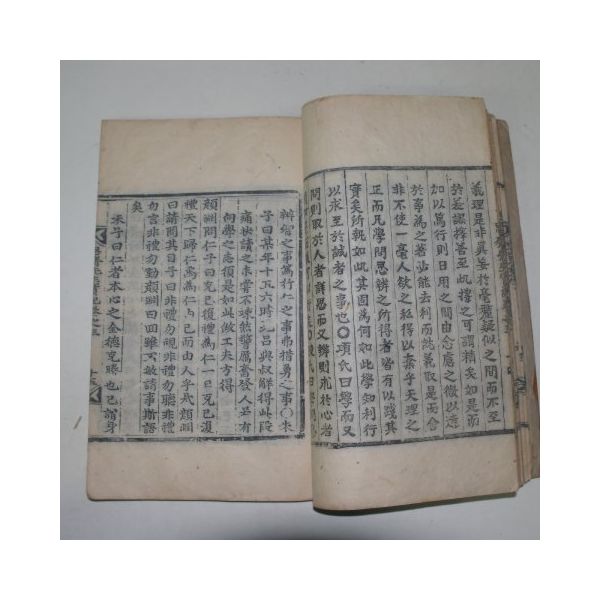 義理是非眞妄於毫釐疑似之間而不至
於差謬擇善至此擇之可謂精矣如是而
加以篤行則日用之間由念慮之微以達
於事爲之著沾能去利而就義取是而舍
非不使一毫人欲之私得以奪乎天理之
正而凡學問思辨之所得者皆有以踐其
實矣所執如此其固爲何如此學知利行
以求至於誠者之事也○項氏曰學而又
問則取於人者詳思而又辨則求於心者
辨智之事篤行仁之事弗措勇之事○朱
子曰某年十五六時見呂與叔解得此段
痛快讀之未嘗不竦然警厲奮發人若有
向學之志須是如此做工夫方得
顔淵問仁子曰克己復禮爲仁一日克己復
禮天下歸仁焉爲仁由己而由人乎哉顔淵
曰請問其目子曰非禮勿視非禮勿聽非禮
勿言非禮勿動顔淵曰回雖不敏請事斯語
矣
朱子曰仁者本心之全德克勝也己謂身